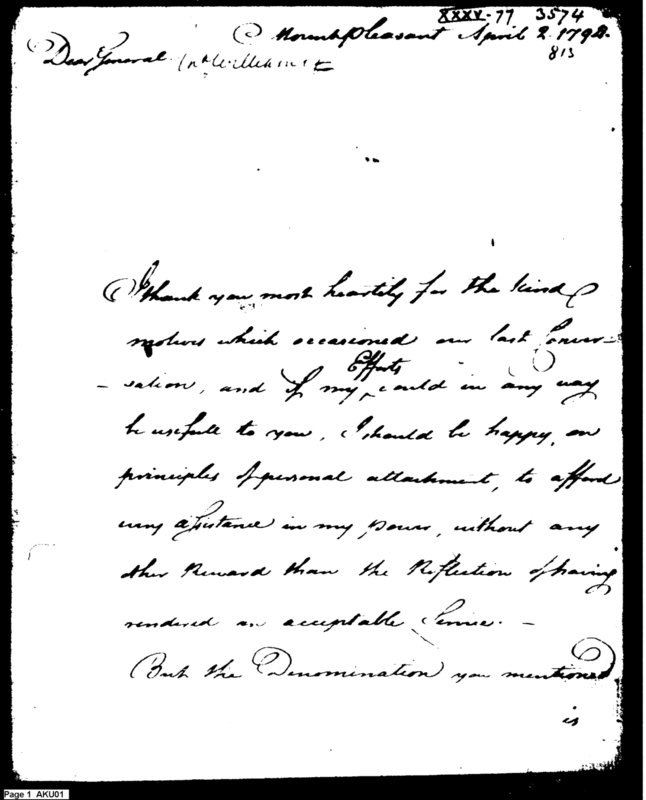 XXXV-77 3574
Mount pleasant April 2. 1792.
813
Dear General.
I thank you most heartily for the kind
motives which occasioned our last Conver-
Efforts
-sation, and if my ^ could in any way
be usefull to you, I should be happy, on
principles of personal attachment, to afford
every assistance in my power, without any
other Reward than the Reflection of having
rendered an acceptable Service. -
But the Denomination you mentioned
is
Page 1 AKU01